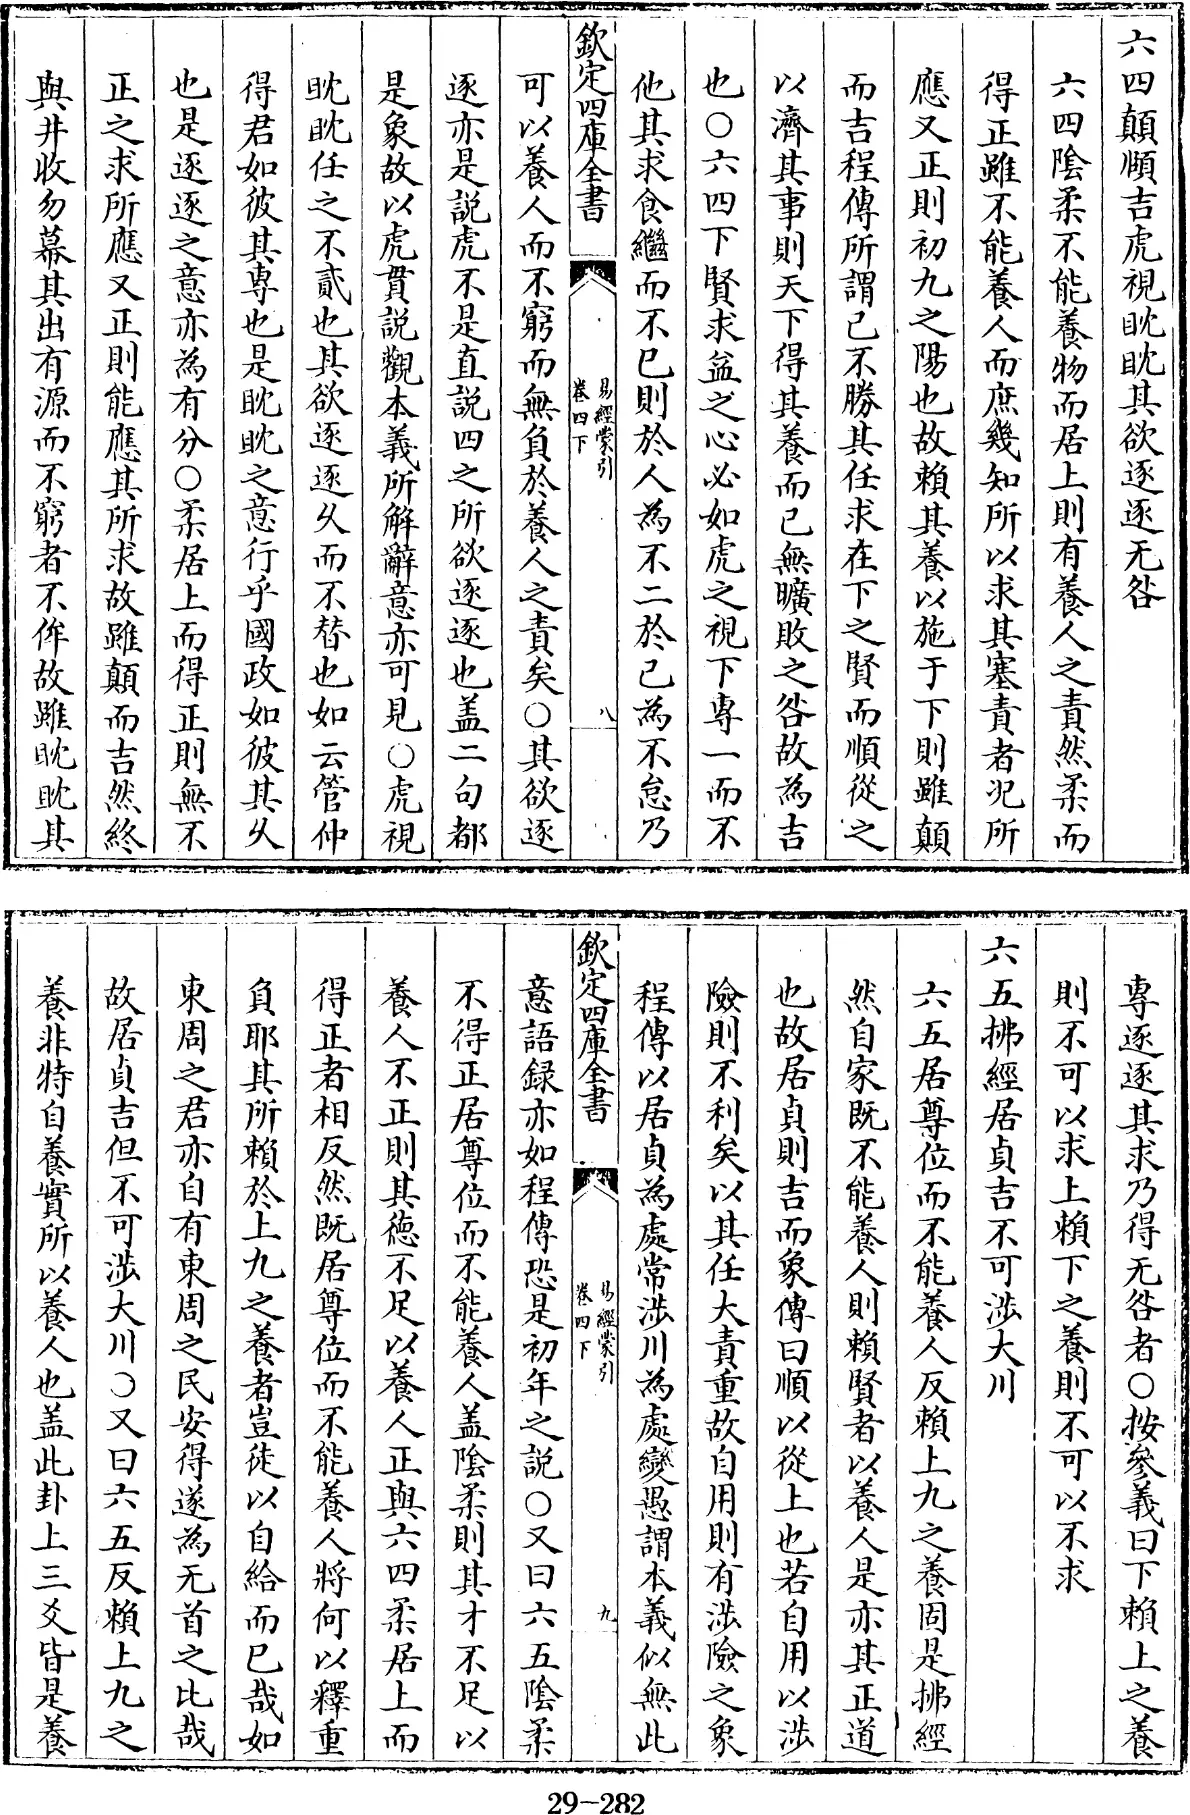 六四顛頤吉虎視眈眈其欲逐逐无咎
六四陰柔不能養物而居上則有養人之責然柔而
得正雖不能養人而庶幾知所以求其塞責者況所
應又正則初九之陽也故賴其養以施于下則雖顛
而吉程傳所謂己不勝其任求在下之賢而順從之
以濟其事則天下得其養而己無曠敗之咎故為吉
也○六四下賢求益之心必如虎之視下專一而不
他其求食繼而不已則於人為不二於己為不怠乃
欽定四庫全書
易經蒙引
卷四下
八
可以養人而不窮而無負於養人之責矣○其欲逐
逐亦是説虎不是直説四之所欲逐逐也盖二句都
是象故以虎貫説觀本義所解辭意亦可見○虎視
眈眈任之不貳也其欲逐逐久而不替也如云管仲
得君如彼其専也是眈眈之意行乎國政如彼其久
也是逐逐之意亦為有分○柔居上而得正則無不
正之求所應又正則能應其所求故雖顛而吉然終
與井收勿幕其出有源而不窮者不侔故雖眈眈其
專逐逐其求乃得无咎者○按參義曰下賴上之養
則不可以求上賴下之養則不可以不求
六五拂經居貞吉不可涉大川
六五居尊位而不能養人反賴上九之養固是拂經
然自家既不能養人則賴賢者以養人是亦其正道
也故居貞則吉而象傳曰順以從上也若自用以涉
險則不利矣以其任大責重故自用則有涉險之象
程傳以居貞為處常涉川為處變愚謂本義似無此
欽定四庫全書
易經蒙引
卷四下
九
意語録亦如程傳恐是初年之説○又曰六五陰柔
不得正居尊位而不能養人盖陰柔則其才不足以
養人不正則其德不足以養人正與六四柔居上而
得正者相反然既居尊位而不能養人將何以釋重
負耶其所賴於上九之養者豈徒以自給而已哉如
東周之君亦自有東周之民安得遂為无首之比哉
故居貞吉但不可涉大川○又曰六五反賴上九之
養非特自養實所以養人也盖此卦上三爻皆是養
29-282